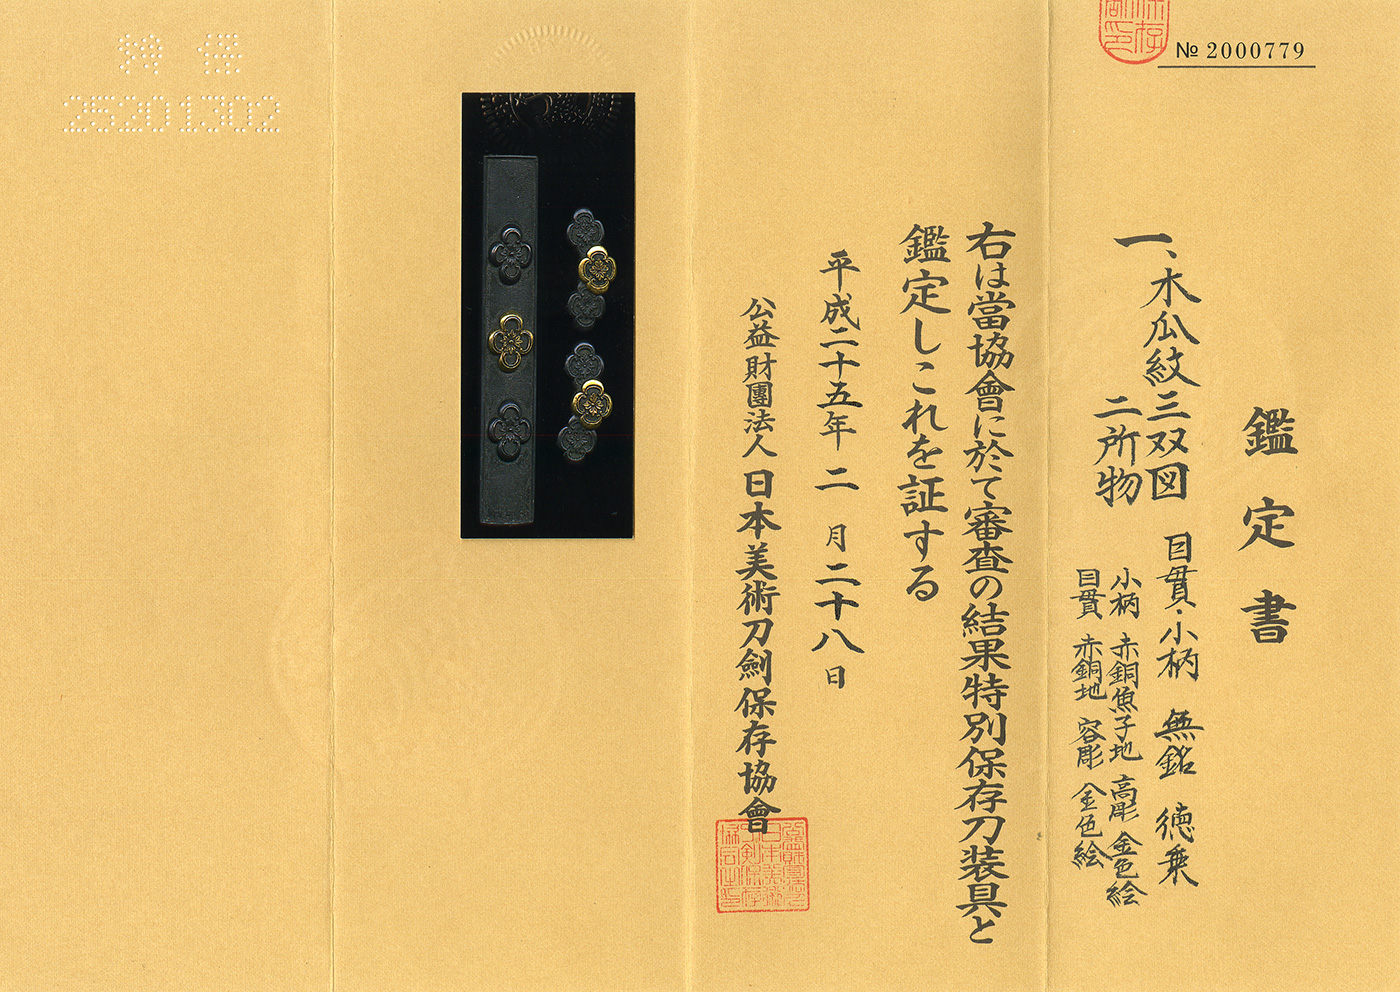 № 2000779
鑑定書
一、木瓜紋三双図
二所物
目貫・小柄 無銘 徳乗
小柄 赤銅魚子地 高彫 金色絵
目貫 赤銅地 容彫 金色絵
右は當協會に於て審査の結果特別保存刀装具と
鑑定しこれを証する
平成二十五年 二 月 二十八 日
公益財團法人 日本美術刀劍保存協會
25201302